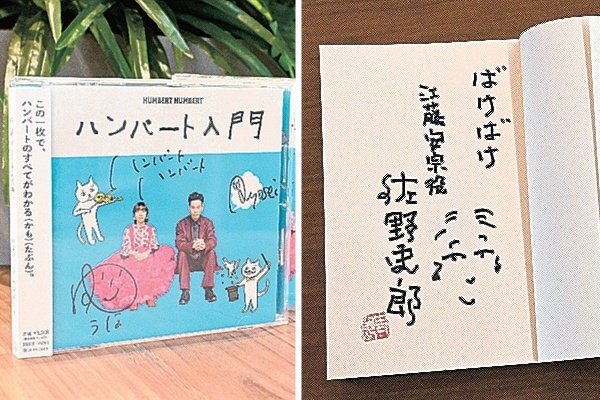 この一枚で、
ハンバートのすべてがわかる(かも)(たぶん)。
HUMBERT HUMBERT
ハンバート入門
ハンバート
ハンバート
Ryosei
ゆうほ
ばけばけ
江藤安宗役
佐野史郎